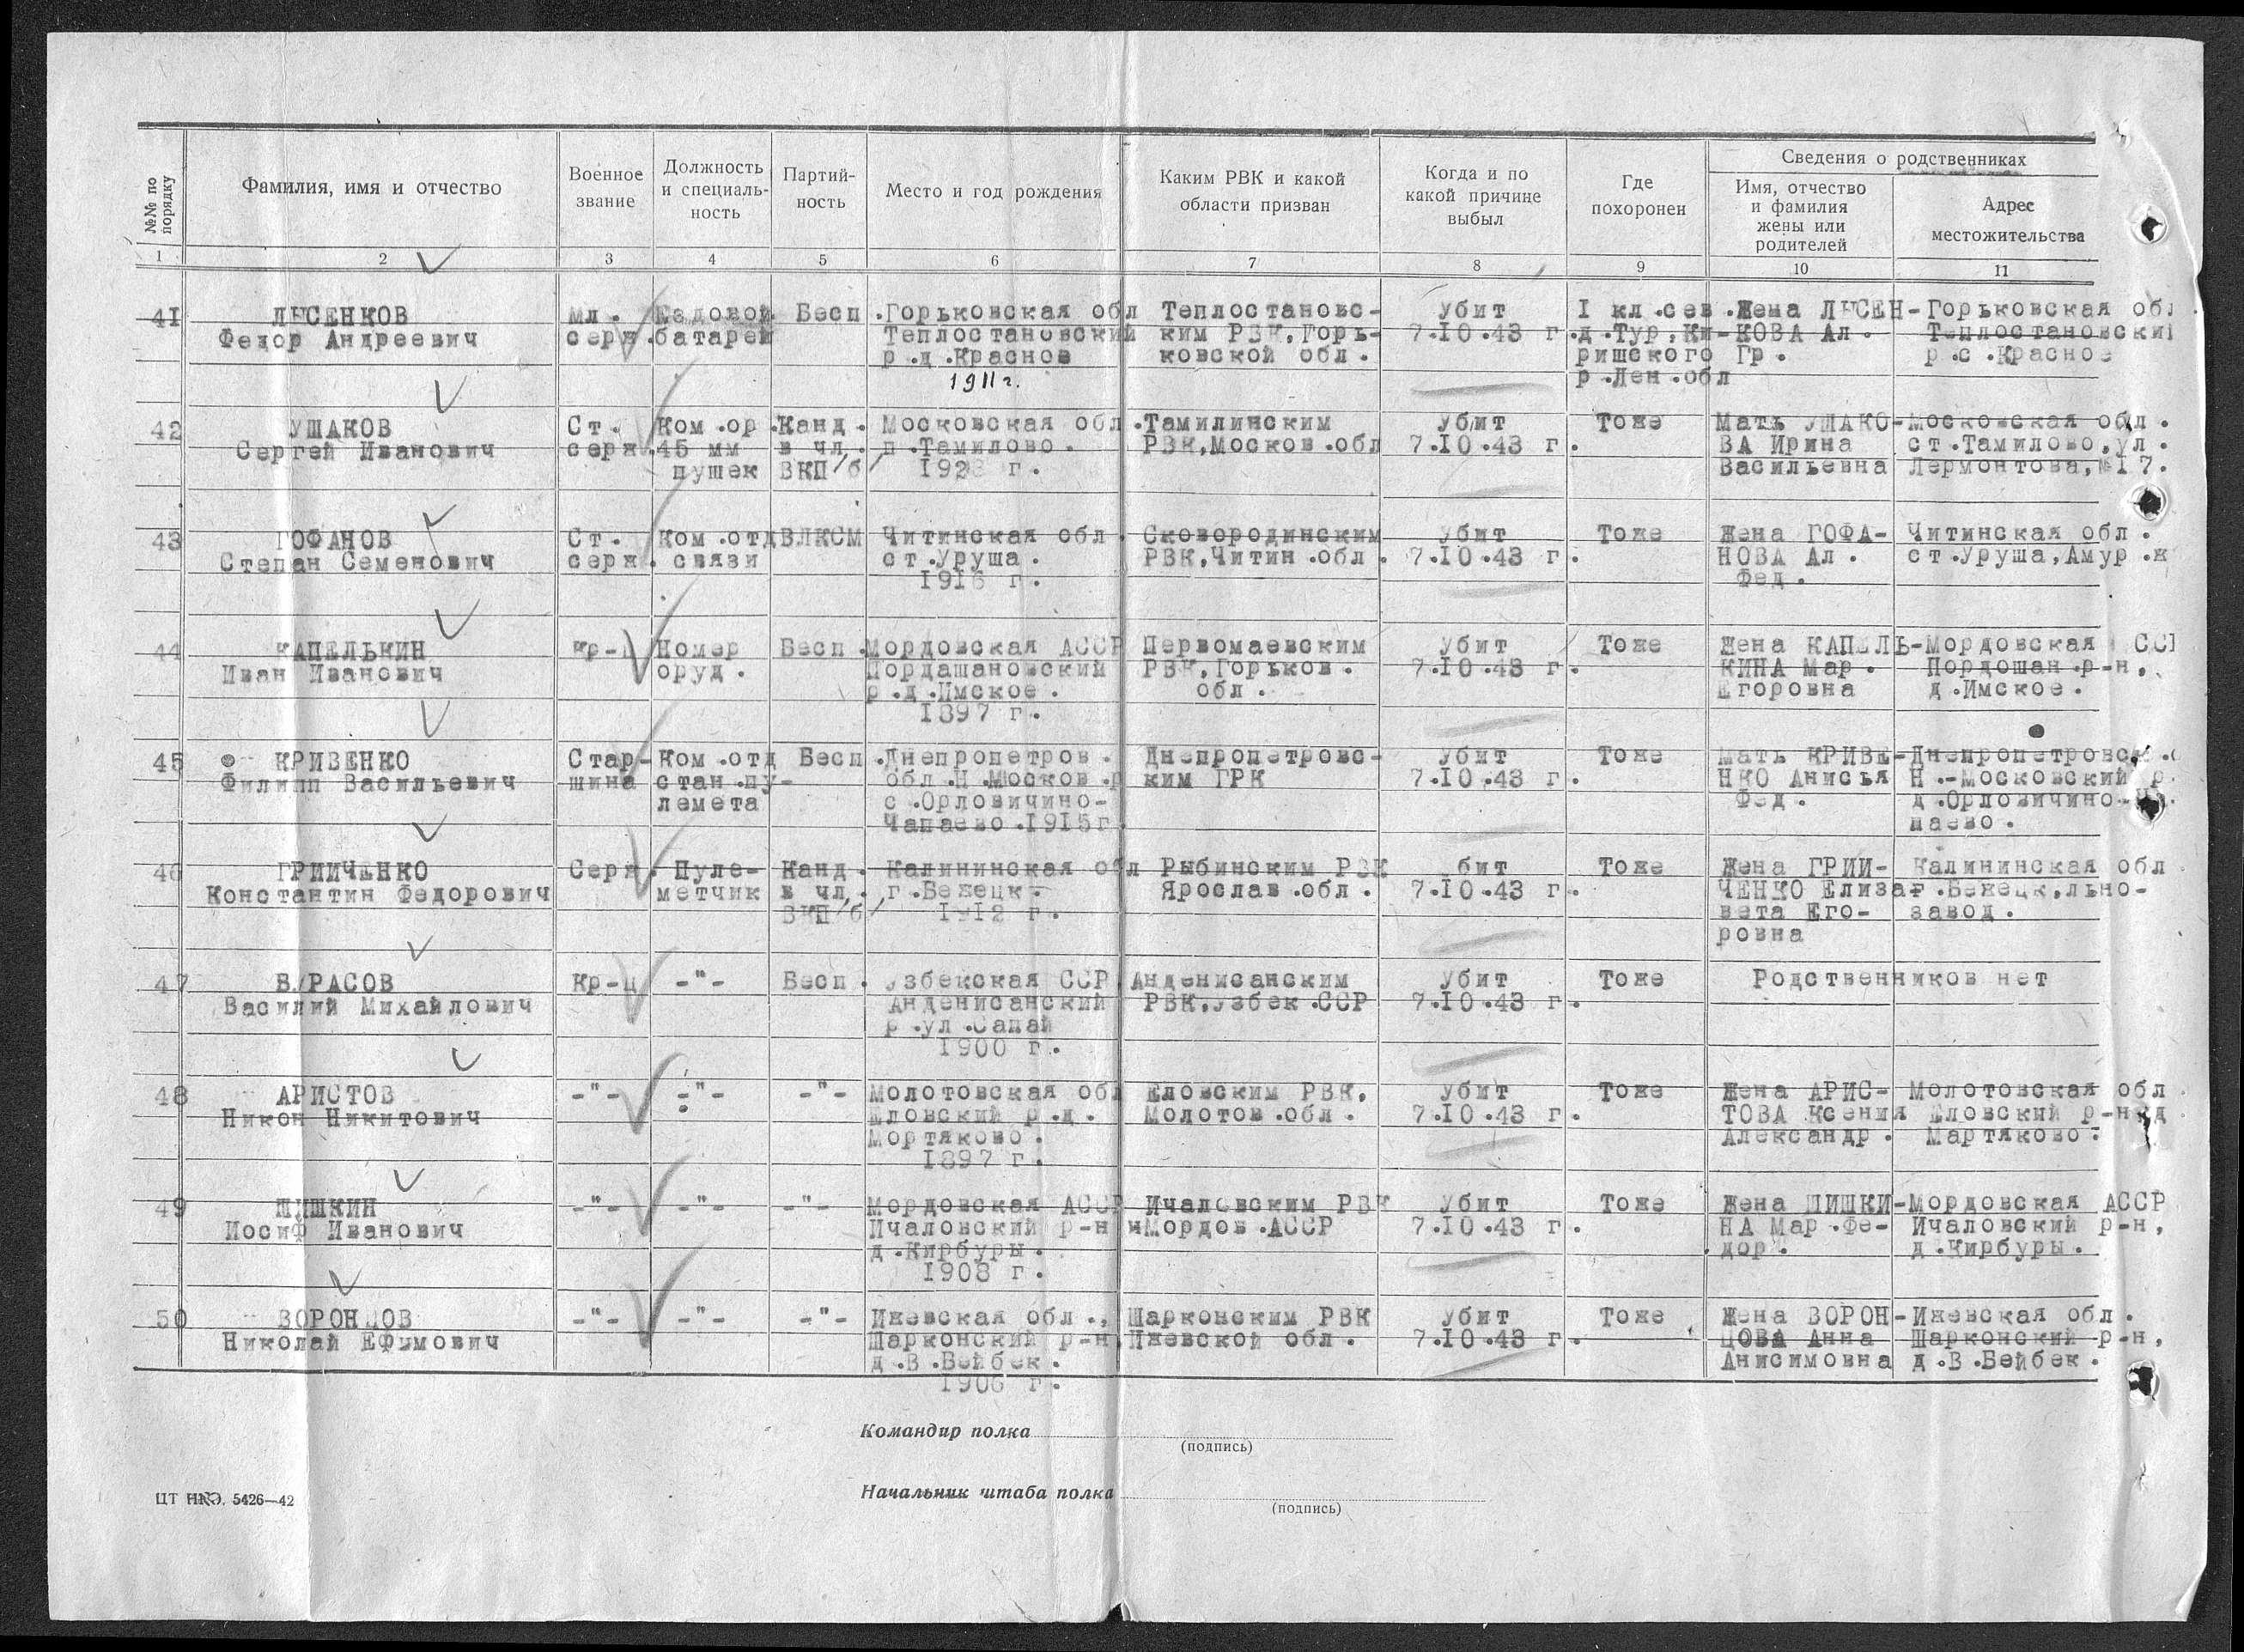 №№ по порядку
Фамилия, имя и отчество
Военное звание
Должность и специаль-ность
Партий-ность
Место и год рождения
Каким РВК и какой области призван
Когда и по какой причине выбыл
Где похоронен
Сведения о родственниках
Имя, отчество и фамилия жены или родителей
Адрес местожительства
1 2 3 4 5 6 7 8 9 10 11
41 ЛЫСЕНКОВ Мл. Ездовой Бесп. Горьковская обл Теплостановс- Убит I кл.сев. Жена ЛЫСЕН- Горьковская обл
Федор Андреевич серж. батареи Теплостановский ким РВК,Горь- 7.10.43 г. д.Тур,Ки- КОВА Ал. Теплостановский
р.д.Краснов ковской обл. ришского Гр. р.с.Красное
1911г. р.Лен.обл
42 УШАКОВ Ст. Ком.ор. Канд. Московская обл. Тамилинским Убит Тоже Мать УШАКО- Московская обл.
Сергей Иванович серж. 45 мм в чл. п.Тамилово. РВК,Москов.обл 7.10.43 г. ВА Ирина ст.Тамилово,ул.
пушек ВКП/б/ г. Васильевна Лермонтова,№17.
43 ГОФАНОВ Ст. Ком.отд ВЛКСМ Читинская обл. Сковородинским Убит Тоже Жена ГОФА- Читинская обл.
Степан Семенович серж. связи ст.Уруша. РВК,Читин.обл. 7.10.43 г. НОВА Ал. ст.Уруша,Амур.ж
1916 г. Фед.
44 КАПЕЛЬКИН Кр- Номер Бесп. Мордовская АССР Первомаевским Убит Тоже Жена КАПЕЛЬ- Мордовская ССР
Иван Иванович оруд. Пордашановский РВК,Горьков. 7.10.43 г. КИНА Мар. Пордошан.р-н,
р.д.Имское. обл. Егоровна д.Имское.
1897 г.
45 КРИВЕНКО Стар- Ком.отд Бесп. Днепропетров. Днепропетровс- Убит Тоже Мать КРИВЕ- Днепропетровск.
Филипп Васильевич шина стан.пу- обл.Н.Москов.р ким ГРК 7.10.43 г. НКО Анисья Н.-Московский р.
лемета с.Орловичино- Фед. д.Орловичино-Ча-
Чапаево.1915г. паево.
46 ГРИИЧЕНКО Серж. Пуле- Канд. Калининская обл Рыбинским РВК бит Тоже Жена ГРИИ- Калининская обл
Константин Федорович метчик в чл. г.Бежецк. Ярослав.обл. 7.10.43 г. ЧЕНКО Елиза- г.Бежецк,льно-
ВКП/б/ 1912 г. вета Его- завод.
ровна
47 БУРАСОВ Кр-ц -"- Бесп. Узбекская ССР, Анденисанским Убит Тоже Родственников нет
Василий Михайлович Анденисанский РВК,Узбек.ССР 7.10.43 г.
р.ул.Сапай
1900 г.
48 АРИСТОВ -"- -"- -"- Молотовская обл Еловским РВК, Убит Тоже Жена АРИС- Молотовская обл
Никон Никитович Еловский р.д. Молотов.обл. 7.10.43 г. ТОВА Ксения Еловский р-н,д
Мортяково. Александр. Мартяково.
1897 г.
49 ШИШКИН -"- -"- -"- Мордовская АССР Ичаловским РВК Убит Тоже Жена ШИШКИ- Мордовская АССР
Иосиф Иванович Ичаловский р-н Мордов.АССР 7.10.43 г. НА Мар.Фе- Ичаловский р-н,
д.Кирбуры. дор. д.Кирбуры.
1908 г.
50 ВОРОНЦОВ -"- -"- -"- Ижевская обл., Шарконским РВК Убит Тоже Жена ВОРОН- Ижевская обл.
Николай Ефимович Шарконский р-н, Ижевской обл. 7.10.43 г. ЦОВА Анна Шарконский р-н,
д.В.Бейбек. Анисимовна д.В.Бейбек.
1906 г.
Командир полка
(подпись)
Начальник штаба полка
(подпись)
ЦТ НКО. 5426—42